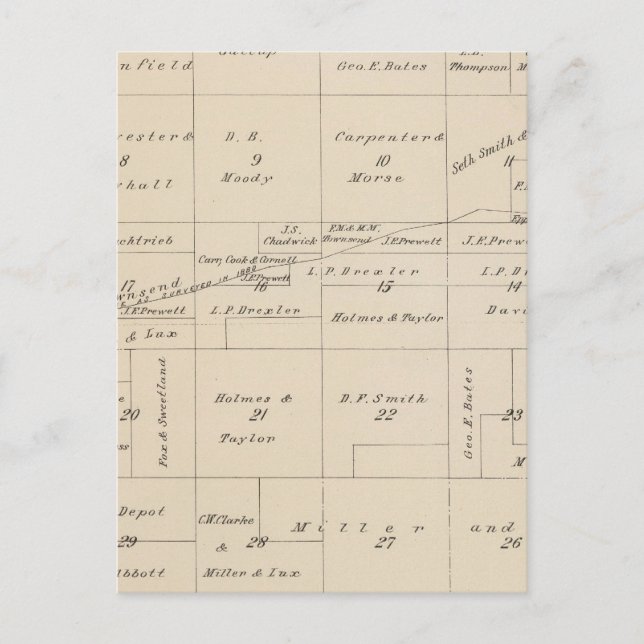 nfield
Gallup
Geo. E. Bates
Thompson
M
vester &
8
hall
D. B.
9
Moody
Carpenter &
10
Morse
Seth Smith &
11
chtrieb
J.S.
Chadwick
F.M. & M.M.
Townsend
J.E. Prewett
J.E. Prew
Carr, Cook & Cornell
17
wnsend
E AS SURVEYED IN 1888
J.E. Prewett
16
J.E. Prewett
L. P. Drexler
L. P. Drexler
15
Holmes & Taylor
L. P. D
14
Davi
& Lux
20
ss
Fox & Sweetland
Holmes &
21
Taylor
D. F. Smith
22
Geo. E. Bates
23
M
Depot
29
bbott
C.W. Clarke
& 28
Miller & Lux
Miller and
27
26